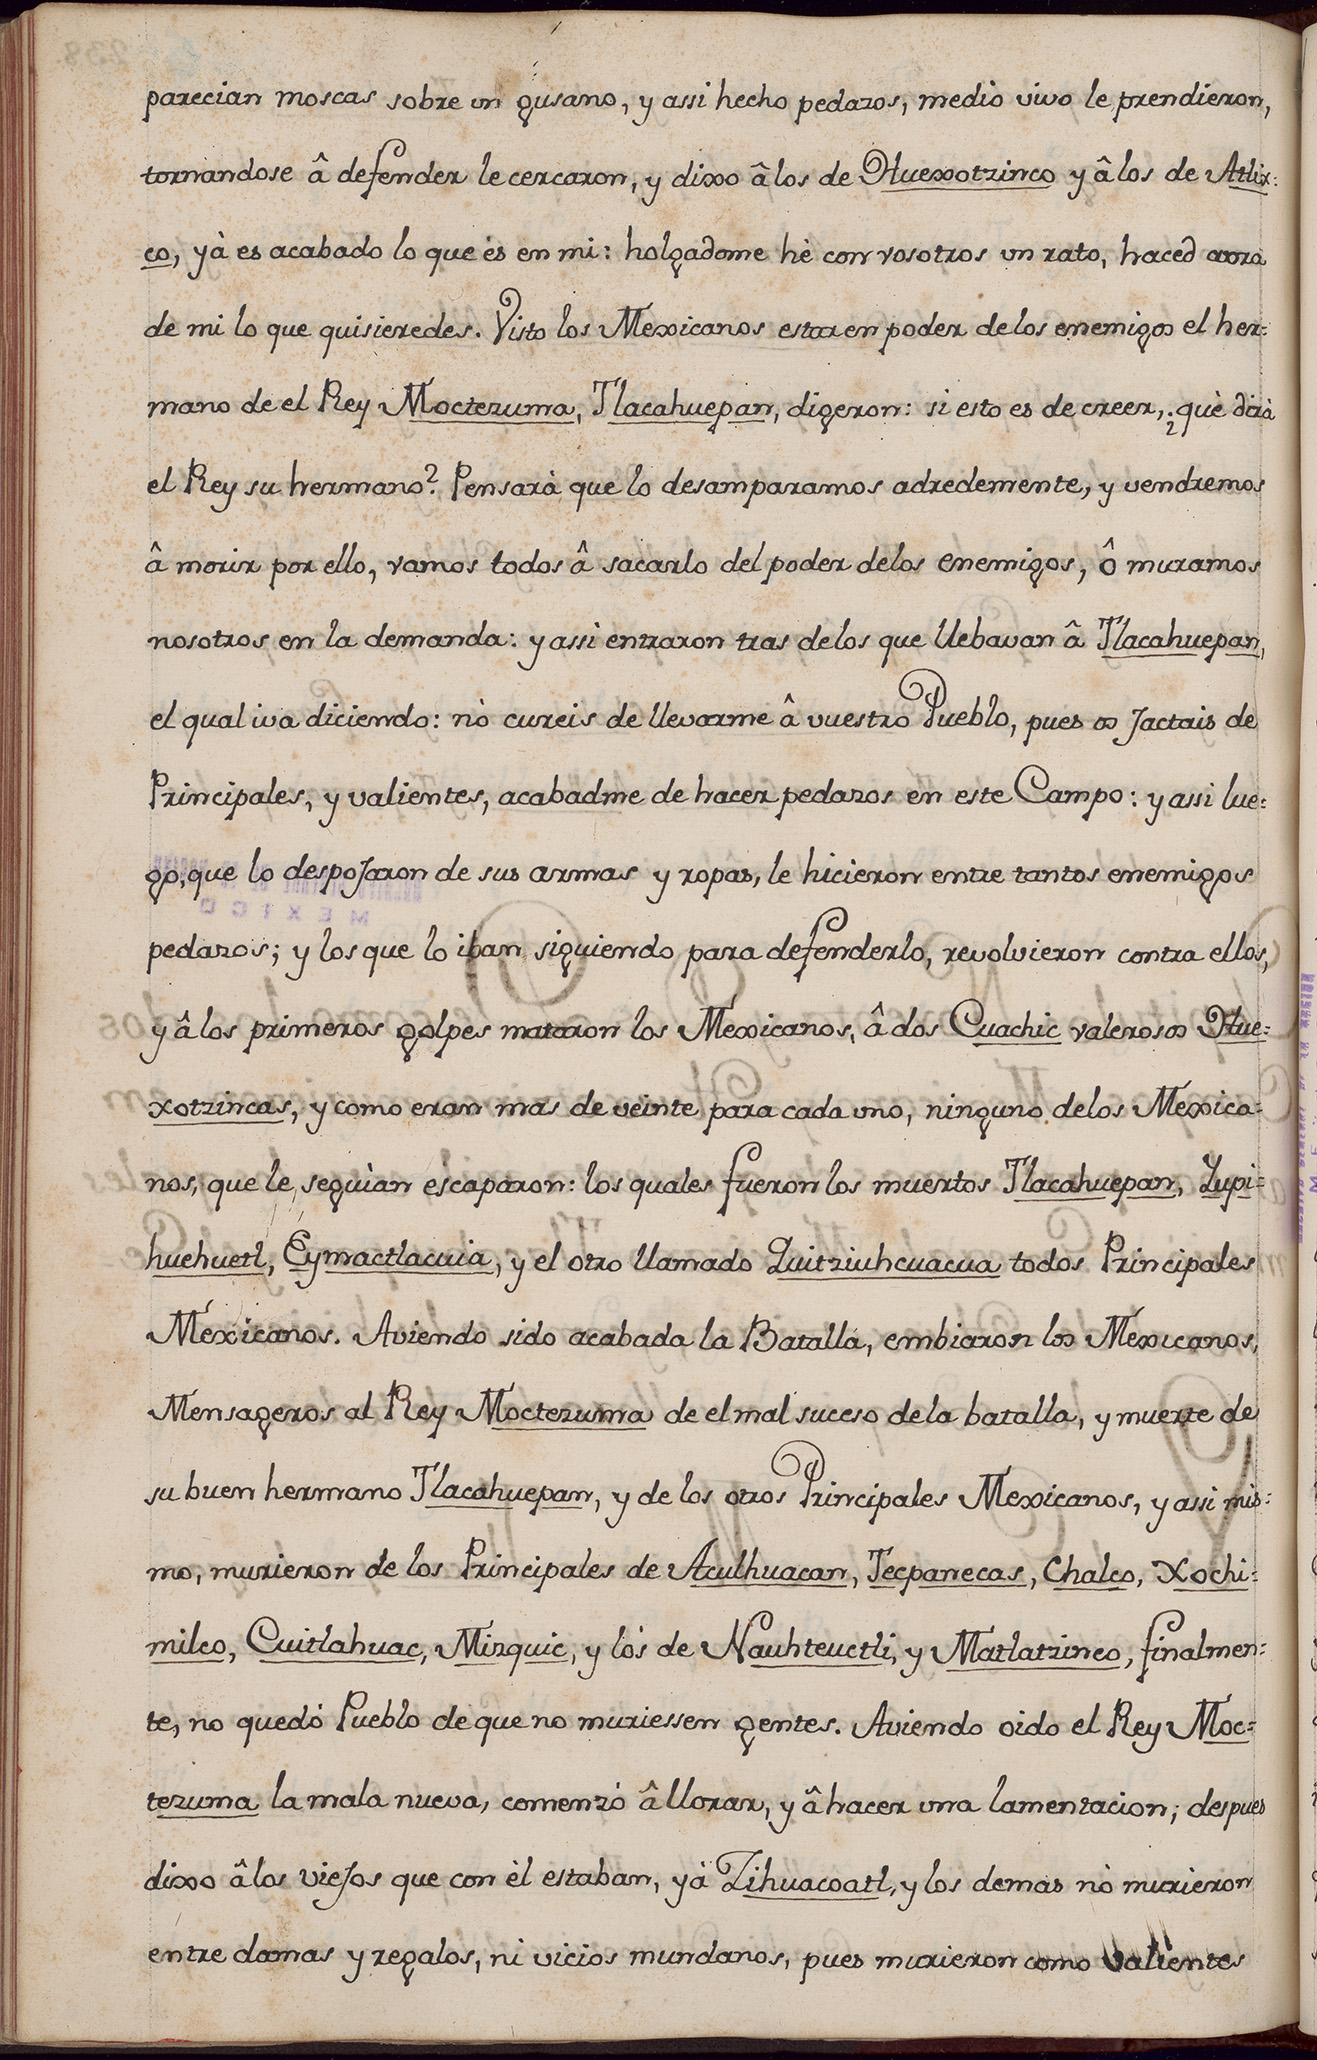 parecian moscas sobre un gusano, y assi hecho pedazos, medio vivo le prendieron,
tornandose â defender le cercaron, y dixo â los de Huexotzinco y â los de Atlix=
co, yà es acabado lo que és en mi: holgadome hè con vosotros un rato, haced aora
de mi lo que quisieredes. Visto los Mexicanos estar en poder de los enemigos el her=
mano de el Rey Moctezuma, Tlacahuepan, digeron: si esto es de creer, ¿què dirà
el Rey su hermano? Pensarà que lo desamparamos adredemente, y vendremos
â morir por ello, vamos todos â sacarlo del poder delos enemigos, ô muramos
nosotros en la demanda: y assi entraron tras delos que llebavan â Tlacahuepan,
el qual iva diciendo: nò cureis de llevarme â vuestro Pueblo, pues os Jactais de
Principales, y valientes, acabadme de hacer pedazos en este Campo: y assi lue=
go, que lo despoJaron de sus armas y ropas, le hicieron entre tantos enemigos
pedazos; y los que lo iban siguiendo para defenderlo, revolvieron contra ellos,
y â los primeros golpes mataron los Mexicanos, â dos Cuachic valerosos Hue=
xotzincas, y como eran mas de veinte para cada uno, ninguno delos Mexica=
nos, que le seguian escaparon: los quales fueron los muertos Tlacahuepan, Zupi=
huehuetl, Cymactlacuia, y el otro llamado Quitziuhcuacua todos Principales
Mexicanos. Aviendo sido acabada la Batalla, embiaron los Mexicanos,
Mensageros al Rey Moctezuma de el mal suceso dela batalla, y muerte de
su buen hermano Tlacahuepan, y de los otros Principales Mexicanos, y assi mis=
mo, murieron de los Principales de Aculhuacan, Tecpanecas, Chalco, Xochi=
milco, Cuitlahuac, Mizquic, y los de Nauhteuctli, y Matlatzinco, finalmen=
te, no quedó Pueblo de que no muriessen gentes. Aviendo oido el Rey Moc=
tezuma la mala nueva, comenzó â llorar, y â hacer una lamentacion; despues
dixo â los vieJos que con èl estaban, yà Zihuacoatl, y los demas nò murieron
entre damas y regalos, ni vicios mundanos, pues murieron como valientes